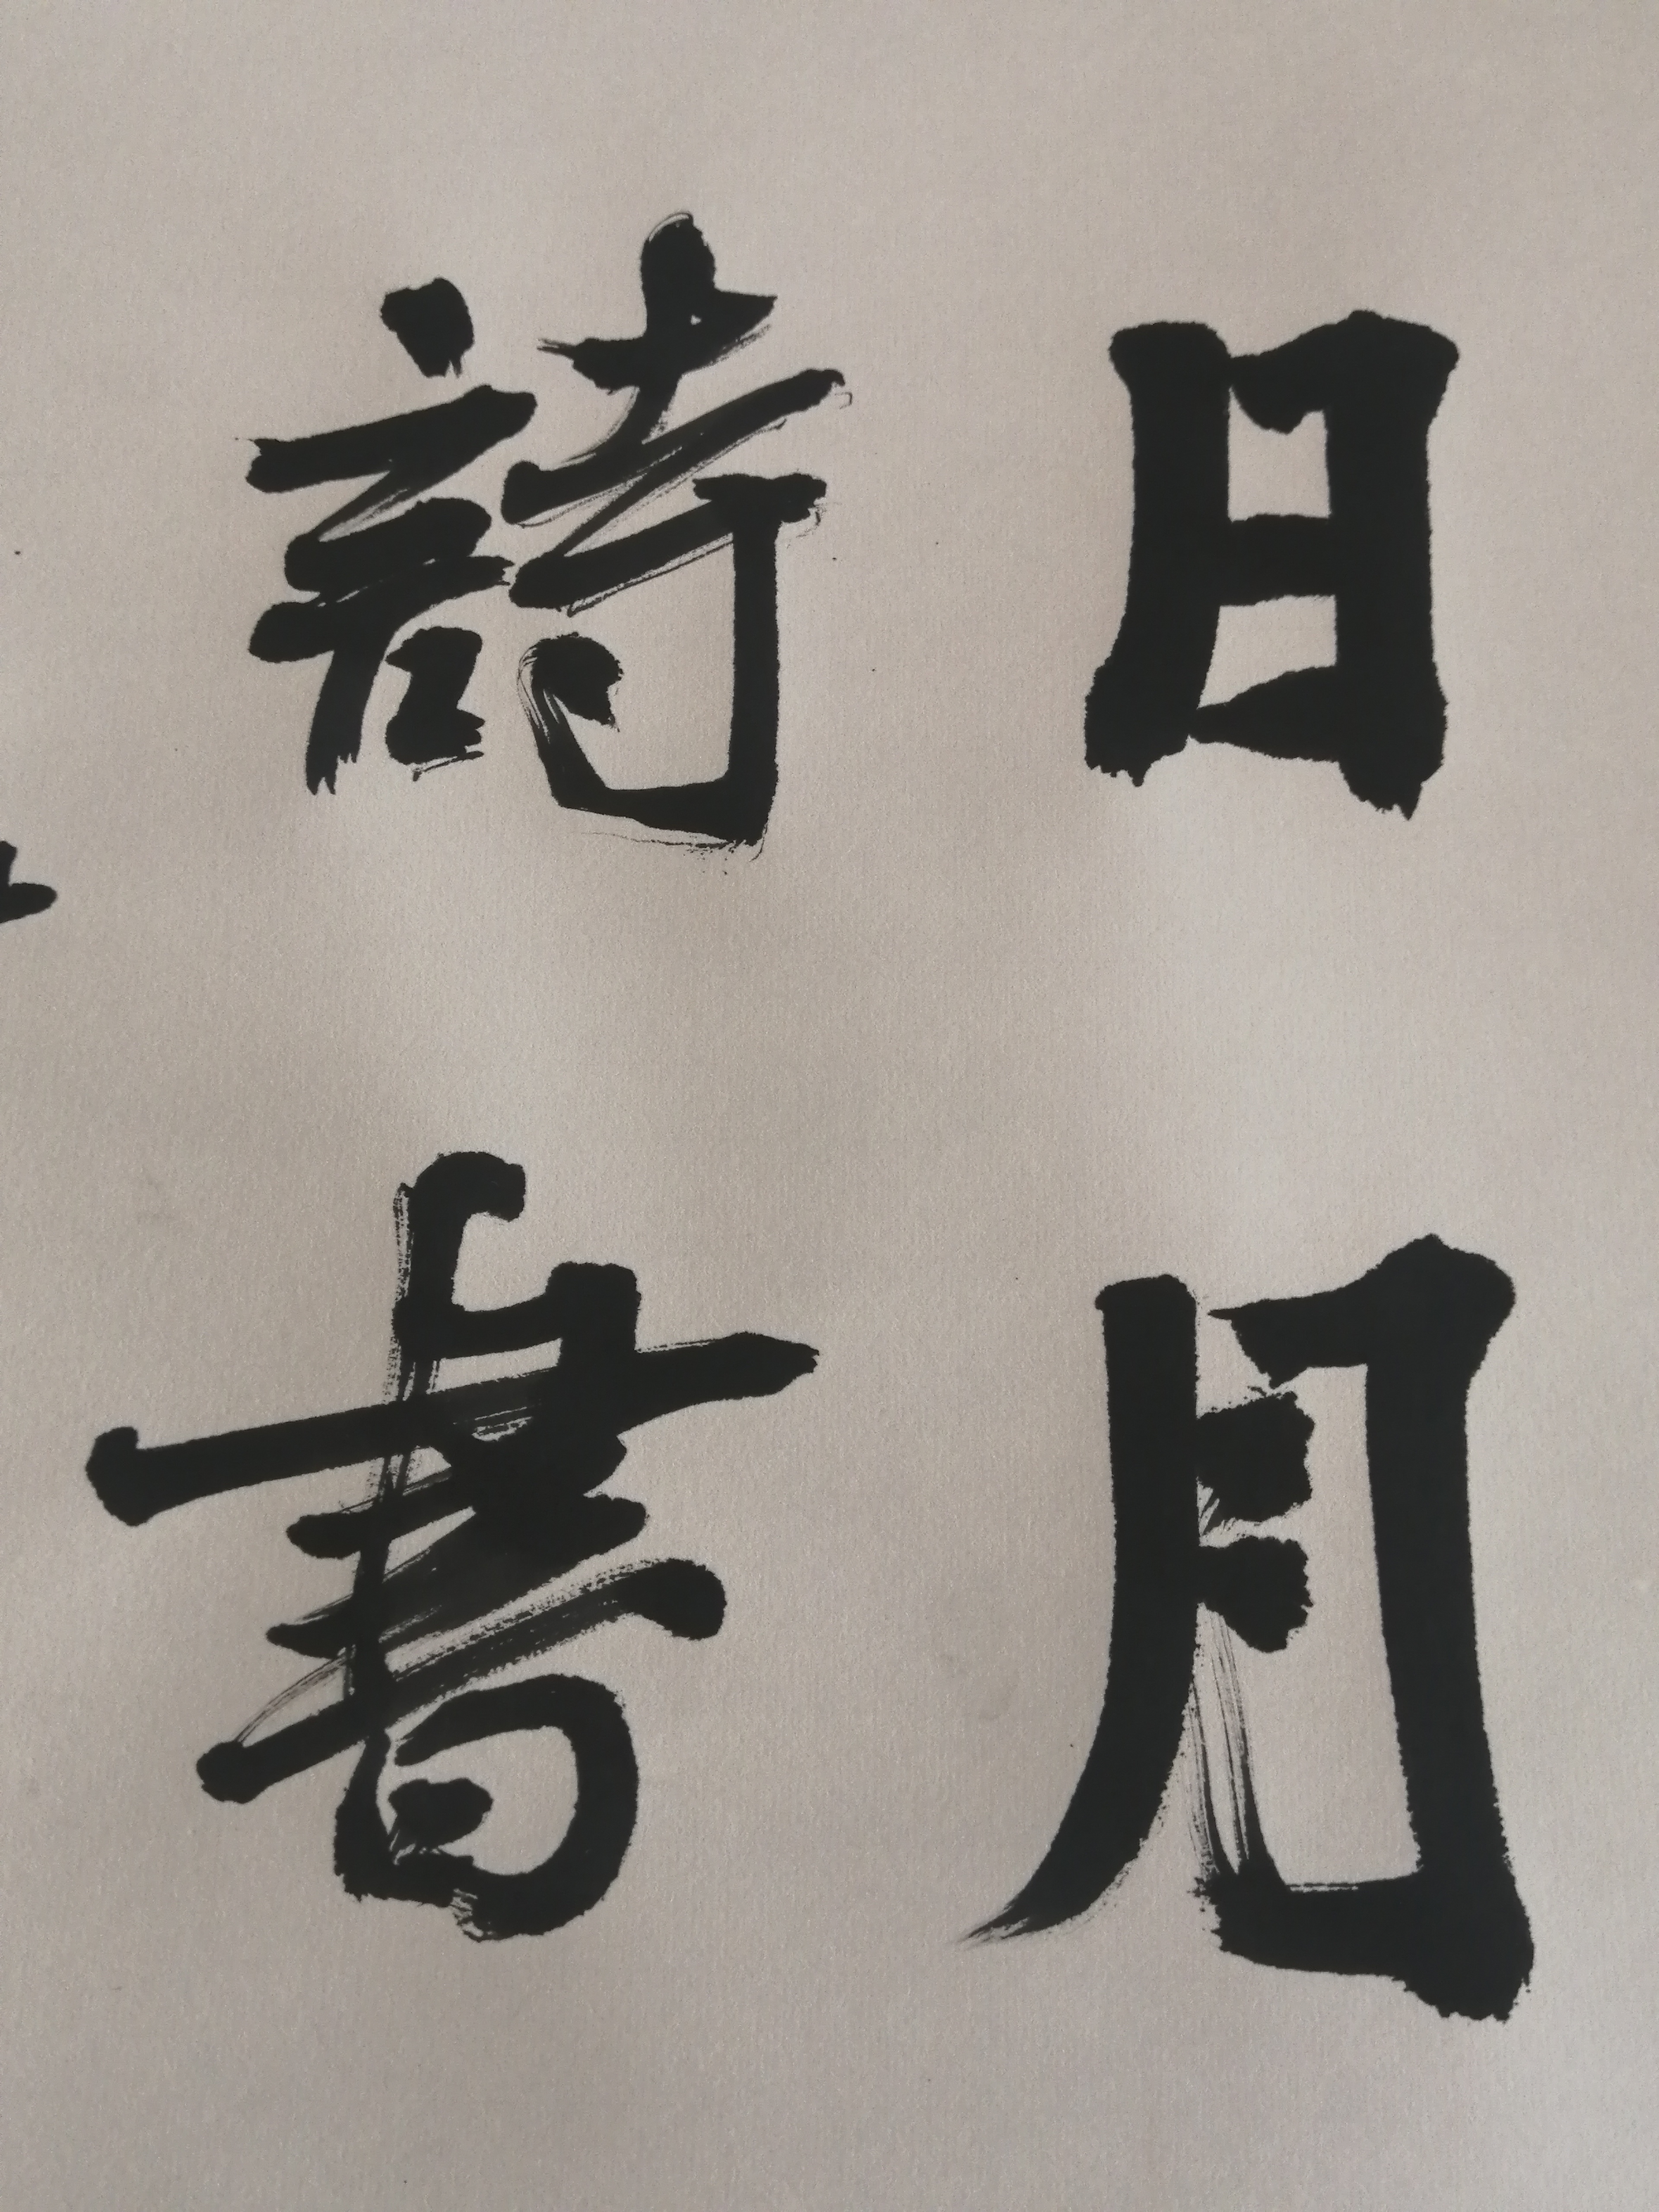 日月
詩書